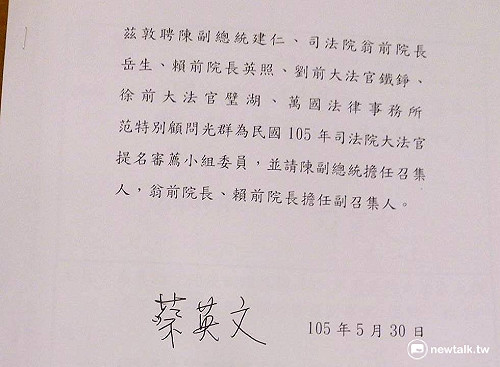 茲敦聘陳副總統建仁、司法院翁前院長
岳生、賴前院長英照、劉前大法官鐵錚、
徐前大法官璧湖、萬國法律事務所
范特別顧問光群為民國105年司法院大法官
提名審薦小組委員，並請陳副總統擔任召集
人，翁前院長、賴前院長擔任副召集人。
蔡英文
105年5月30日
newtalk.tw